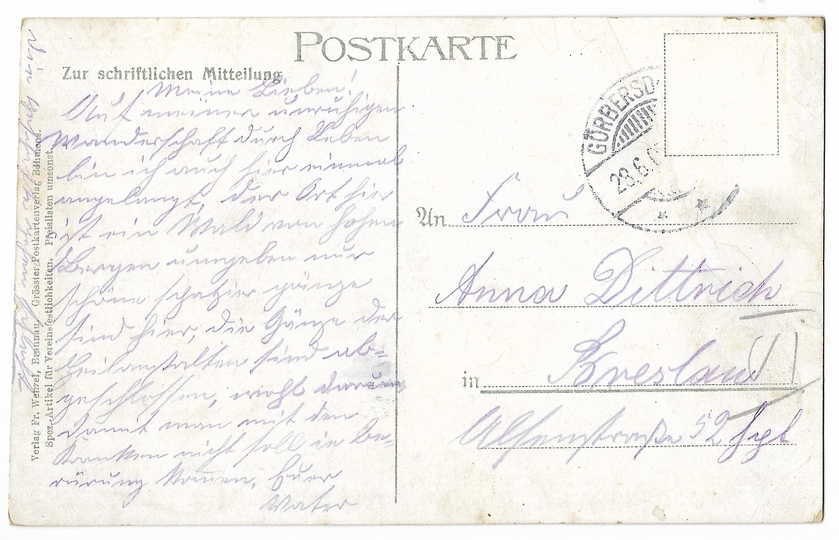 POSTKARTE
Zur schriftlichen Mitteilung
Meine Lieben!
Auf meiner unruhigen
Wanderschaft durch Leben
bin ich auch hier einmal
angelangt, der Ort hier
ist ein Wald von hohen
Bergen umgeben nur
schöne spazier gänge
sind hier, die Gänge der
Heilanstalten sind ab=
geschlossen, wohl darum
damit man mit den
Kranken nicht soll in be
rürung komen, Euer
Vater
Verlag Fr. Wenzel, Braunau. Grösster Postkartenverlag Böhmens.
Spez.-Artikel für Vereinsfestlichkeiten. Preislisten umsonst.
GÖRBERSD
28.6.0
An Frau
Anna Dittrich
in Breslau VI
Alsenstraße 52